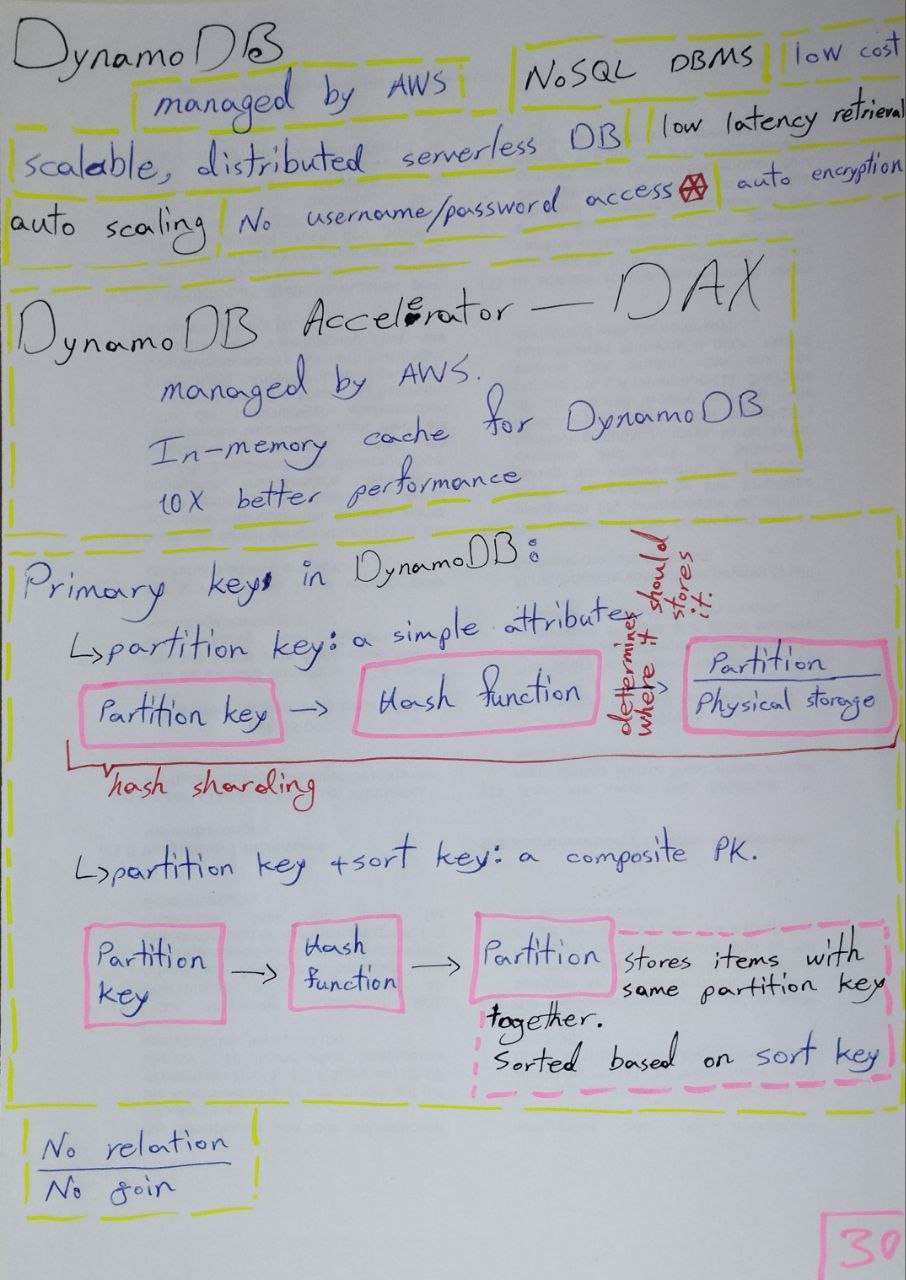 DynamoDB
managed by AWS
NoSQL DBMS
low cost
scalable, distributed serverless DB
low latency retrieval
auto scaling
No username/password access
auto encryption
DynamoDB Accelerator — DAX
managed by AWS.
In-memory cache for DynamoDB
10X better performance
Primary keys in DynamoDB:
↳partition key: a simple attributes
Partition key → Hash function → Partition
Physical storage
determines
where it should
stores
it.
hash sharding
↳partition key + sort key: a composite PK.
Partition
key
→
Hash
function
→
Partition
stores items with
same partition key
together.
Sorted based on sort key
No relation
No join
30